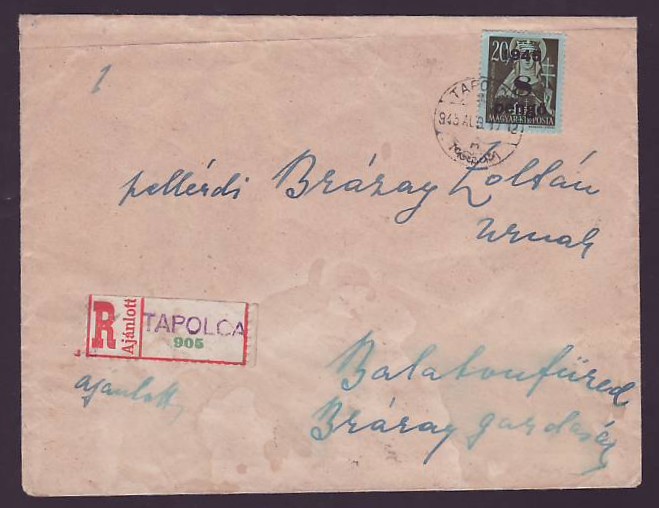 1
20
1945
8
pengő
MAGYAR KIR. POSTA
TAPOLCA
945 AUG 17 12
pellérdi Bráray Zoltán
Urnak
R Ajánlott TAPOLCA
905
ajánlott
Balatonfüred
Bráray gazdaság